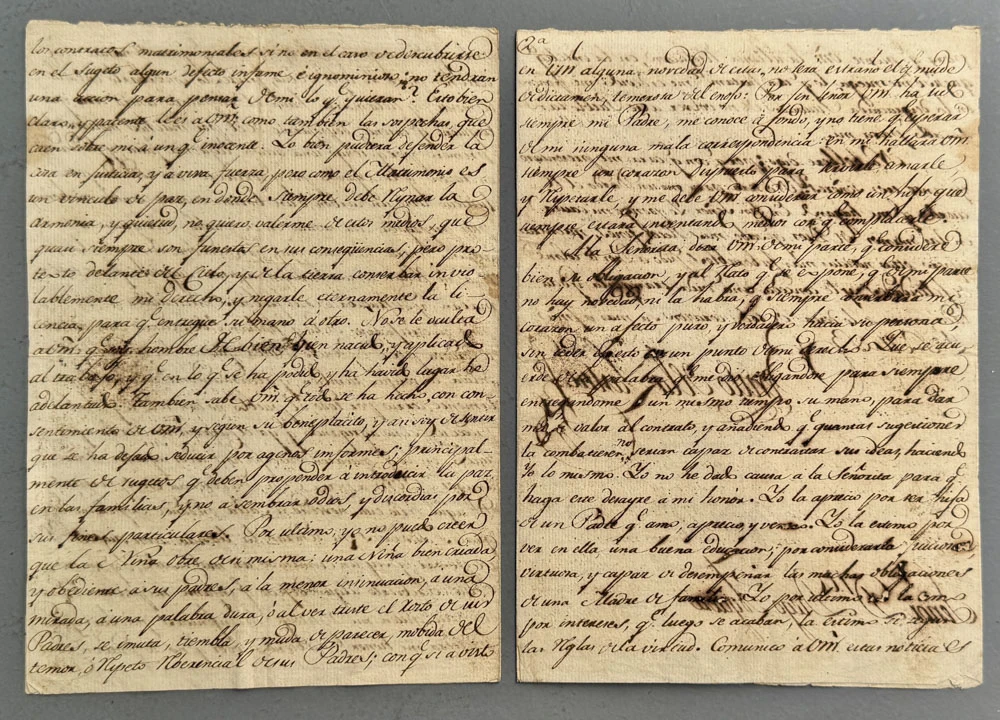 los contratos matrimoniales sino en el caso de descubrirse
en el sugeto algun defecto infame, é ignominioso, no tendran
una accion para pensar de mi lo q.e quieran? Esto bien
claro, y patente le es a Vm. como tambien las sospechas, que
caen sobre mi a un q.e inocente. Yo bien pudiera defender la
cosa en justicia, y a viva fuerza, pero como el Matrimonio es
un vinculo de paz, en donde siempre debe Reynar la
armonia, y quietud, no quiero valerme de estos medios, que
quasi siempre son funestos en sus conseqüencias; pero pro
texto delante del Cielo, y de la tierra conserbar invio
lablemente mi derecho, y negarle eternamente la li
cencia para q.e entregue su mano á otro. No se le oculta
a Vm. q.e soy hombre de bien bien nacido, y aplicado
al trabajo, y q.e en lo q.e se ha podido y ha havido lugar he
adelantado. Tambien sabe Vm. q.e todo se ha hecho con con-
sentimiento de Vm. y segun su beneplacito, y an soy de sentir
que se ha dejado seducir por agenos informes; principal-
mente de sugetos q.e deben propender á introducir la paz
en las familias, y no a sembrar odios y discordias por
sus fines particulares. Por ultimo, yo no puedo creer
que la Niña obre de si misma: una Niña bien criada
y obediente a sus padres, á la menor insinuacion, a una
mirada, a una palabra dura, ó al ver triste el rostro de sus
Padres, se inmuta, tiembla, y muda de parecer, mobida del
temor, ó Respeto Reverencial de sus Padres; con q.e si a visto
2.a
en Vm alguna novedad de estas, no será extraño el q.e mude
de dictamen, temerosa del enojo. Por fin señor Vm. ha sido
siempre mi Padre, me conoce á fondo, y no tiene q.e esperar
de mi ninguna mala correspondencia. En mi hallará Vm.
siempre un corazon dispuesto para amarle
y Respetarle, y me debe Vm considerar como un hijo que
siempre estará inventando medios con q.e complacerle.
A la Señorita dira Vm. de mi parte, q.e considere
bien su obligacion, y al Plato q.e se expone, q.e de mi parte
no hay novedad ni la habra, q.e siempre mi
corazon un afecto puro, y verdadero hacia su persona,
sin ceder en un punto de mi derecho. Que se acu
erde de la palabra q.e me dio obligandose para siempre
entregandome a un mismo tiempo su mano, para dar
mas valor al contrato, y añadiendo q.e quantas sugestiones
la combatieren no serian capaz de contrastar sus ideas, haciendo
Yo lo mismo. Yo no he dado causa a la Señorita para q.e
haga este desayre á mi honor. Yo la aprecio por ser hija
de un Padre q.e amo, aprecio, y venero. Yo la estimo por
ver en ella una buena educacion; por considerarla juiciosa,
virtuosa, y capaz de desempeñar las muchas obligaciones
de una Madre de familia. Yo por ultimo no la amo
por intereses, q.e luego se acaban, la estimo
las Reglas de la virtud. Comunico a Vm. estas noticias